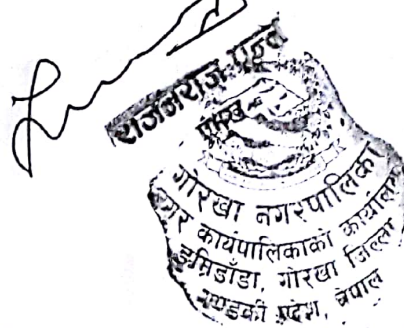 राजनराज पन्त
प्रमुख
गोरखा नगरपालिका
नगर कार्यपालिकाको कार्यालय
डुम्रिडाँडा, गोरखा जिल्ला
गण्डकी प्रदेश, नेपाल